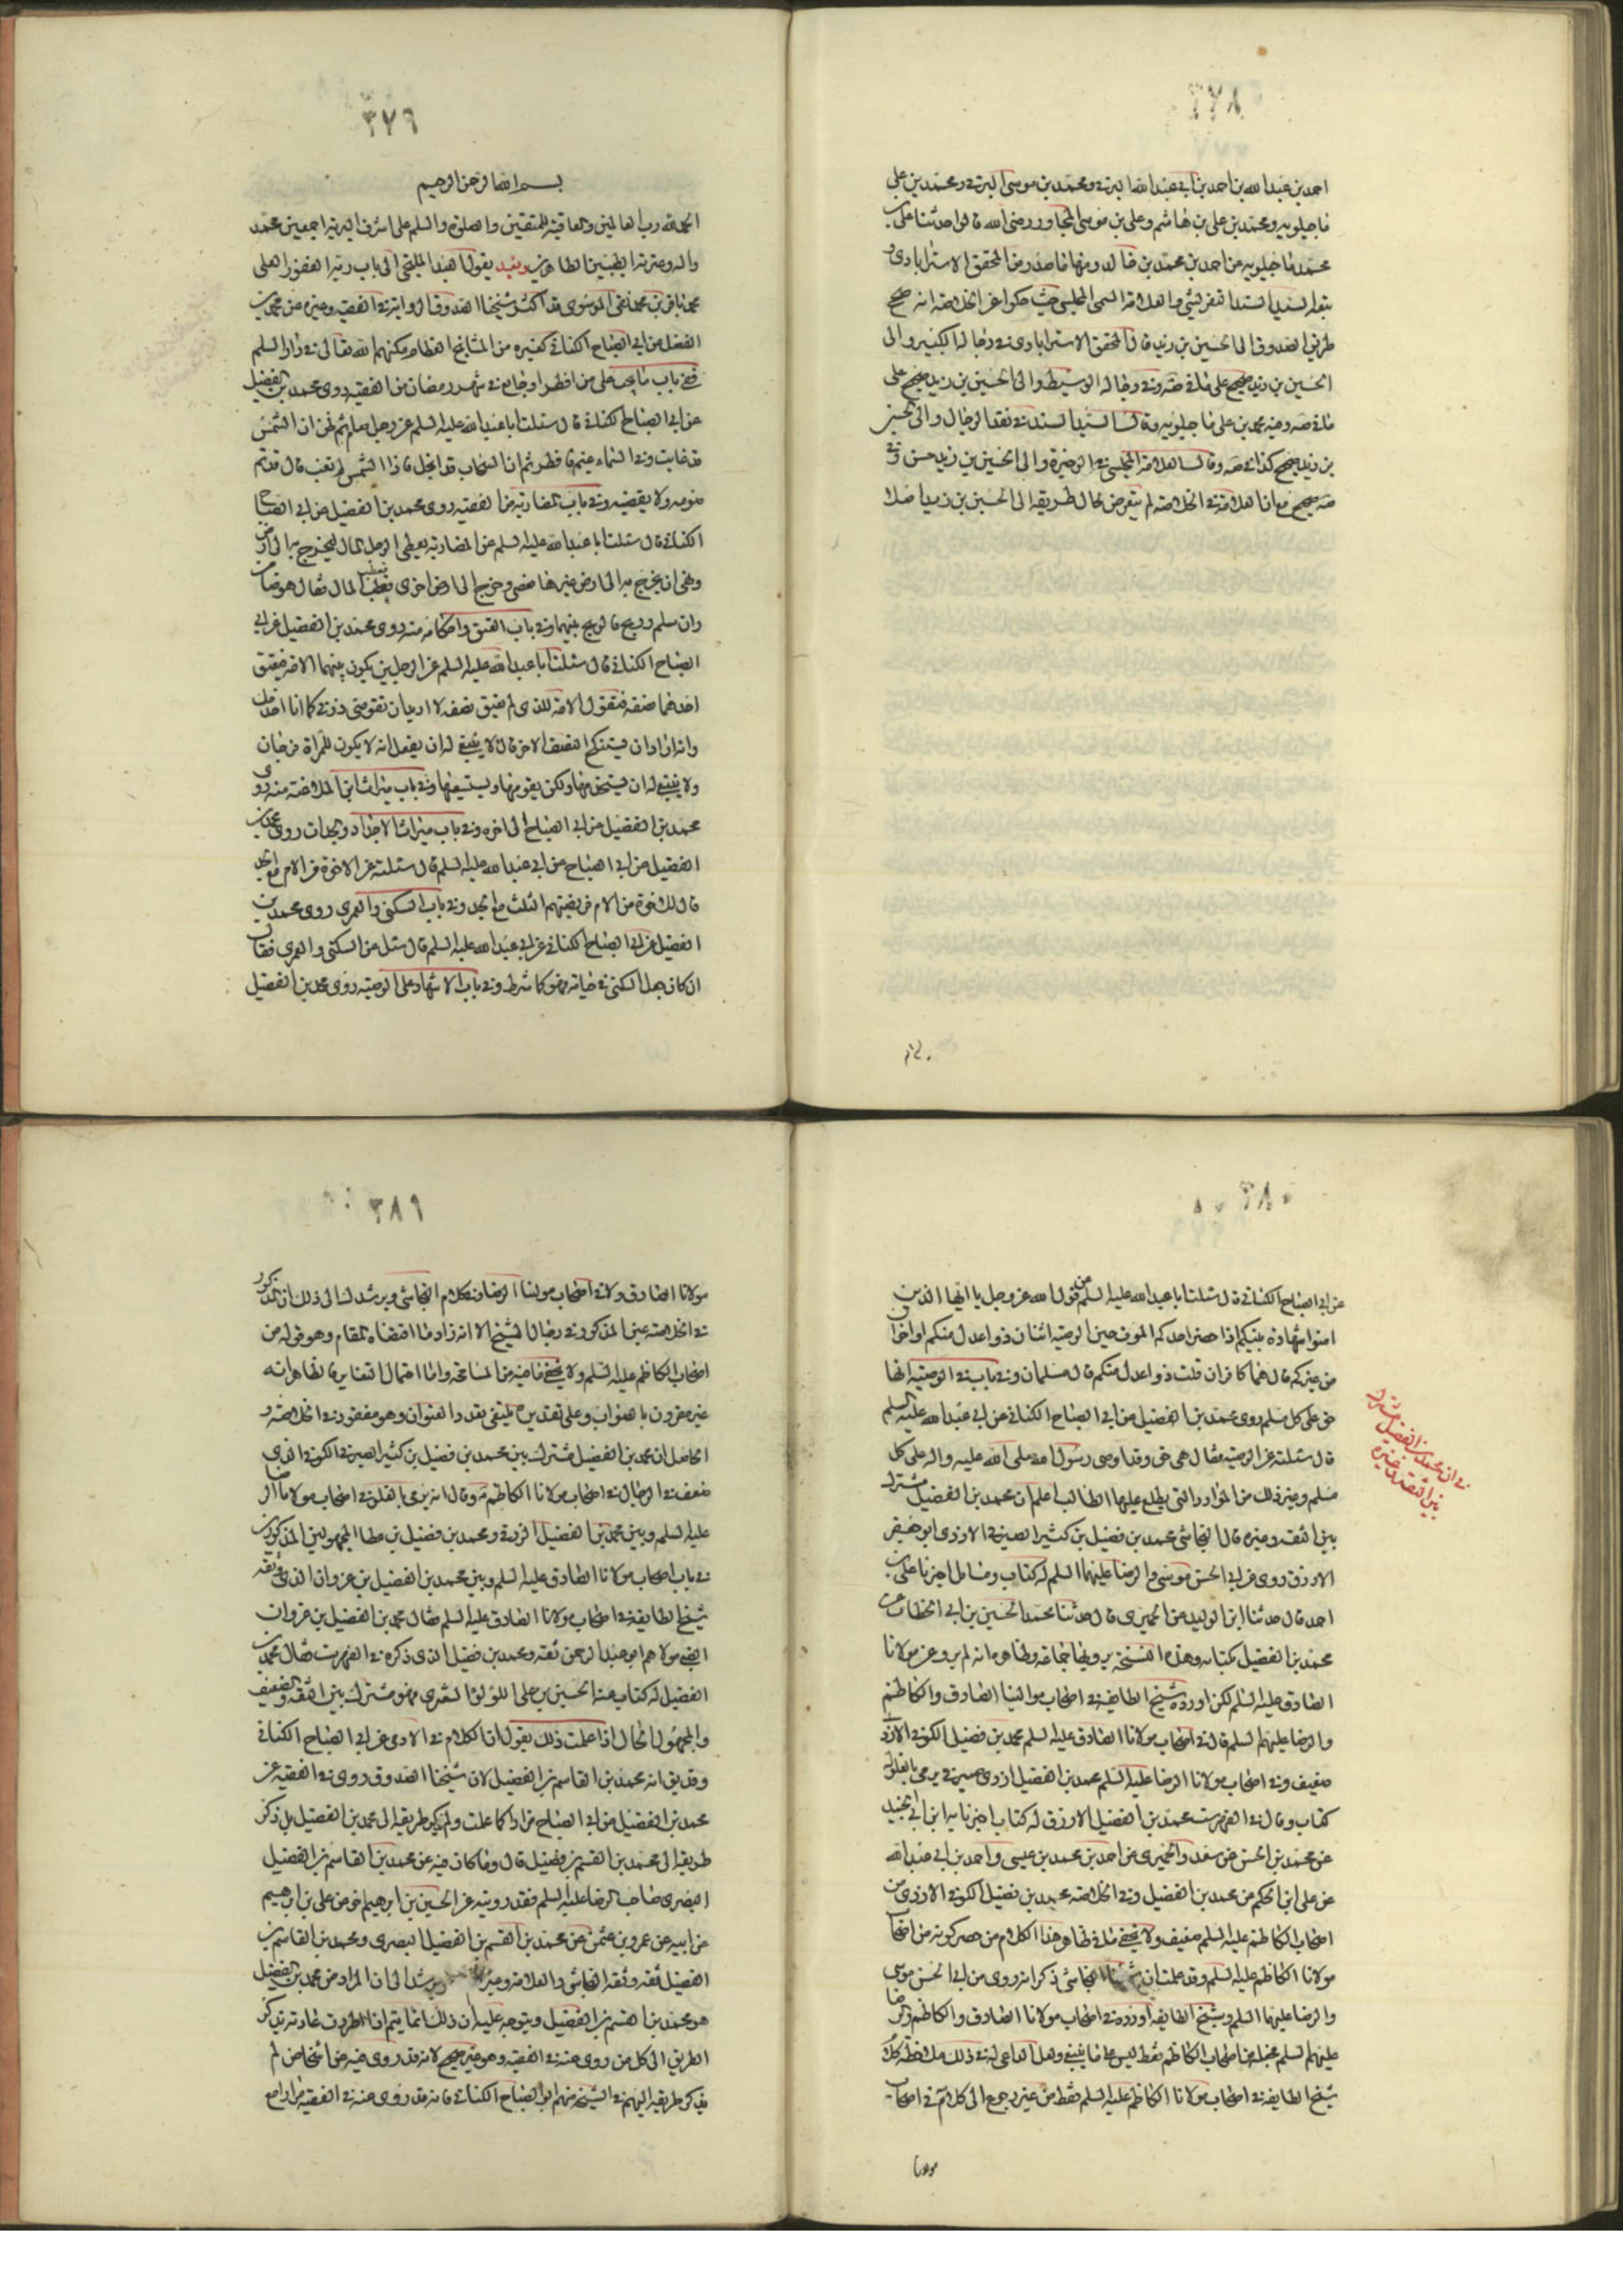 ٣٧٨
احمد بن عبدالله بن احمد بن ابي عبدالله البرقي ومحمد بن موسى البرقي ومحمد بن علي
ماجيلويه ومحمد بن علي بن هاشم وعلي بن موسى المجاور رضي الله قالوا حدثنا علي بن
محمد ماجيلويه عن احمد بن محمد بن خالد ومنها ما صدر من المحقق الاسترابادي و
السيد السند التفرشي والعلامة السمي المجلسي حيث حكوا عن الخلاصه انه صحح
طريق الصدوق الى الحسين بن زيد قال المحقق الاسترابادي في رجاله الكبير والى
الحسين بن زيد صحيح على ما في صه وفي رجاله الوسيط والى الحسين بن زيد صحيح على
ما في صه وفيه محمد بن علي ماجيلويه وقال السيد السند في نقد الرجال والى الحسين
بن زيد صحيح كذا في صه وقال العلامة المجلسي في الوجيزة والى الحسين بن زيد حسن وفي
صه صحيح مع ان العلامة في الخلاصه لم يتعرض لحال طريقه الى الحسين بن زيد اصلا
٣٧٩
بسم الله الرحمن الرحيم
الحمد لله رب العالمين والعاقبة للمتقين والصلوة والسلم على اشرف البرية اجمعين محمد
واله وعترته الطيبين الطاهرين وبعد يقول العبد الملتجى الى باب ربه الغفور العلي
محمد باقر بن محمد نقي الموسوي قد اكثر شيخنا الصدوق الرواية في الفقيه وغيره عن محمد بن
الفضيل عن ابي الصباح الكناني كغيره من المشايخ العظام مكنهم الله تعالى في دار السلم
ففي باب ما يجب على من افطر او جامع في شهر رمضان من الفقيه روى محمد بن الفضيل
عن ابي الصباح الكناني قال سئلت ابا عبد الله عليه السلم عن رجل صام ثم ظن ان الشمس
قد غابت وفي السماء غيم فافطر ثم ان السحاب قد انجلى فاذا الشمس لم تغب قال قد تم
صومه ولا يقضيه وفي باب المضاربة من الفقيه روى محمد بن الفضيل عن ابي الصباح
الكناني قال سئلت ابا عبد الله عليه السلم عن المضاربة يعطى الرجل المال ليخرج به الى ارض
ونهى ان يخرج به الى ارض غيرها فعصى وخرج الى ارض اخرى فعطب المال فقال هو ضامن
وان سلم وربح فالربح بينهما وفي باب العتق واحكامه منه روى محمد بن الفضيل عن ابي
الصباح الكناني قال سئلت ابا عبد الله عليه السلم عن الرجلين يكون بينهما الامة فيعتق
احدهما نصفه فتقول الامة للذي لم يعتق نصفه لا اريد ان تقومني ذرني كما انا اخدمك
وانه اراد ان يستنكح النصف الاخر قال لا ينبغي له ان يفعل انه لا يكون للمراة فرجان
ولا ينبغي له ان يستخدمها ولكن يقومها ويستسعيها وفي باب ميراث ابن الملاعنة منه روى
محمد بن الفضيل عن ابي الصباح الى اخره وفي باب ميراث الاجداد والجدات روى محمد بن
الفضيل عن ابي الصباح عن ابي عبد الله عليه السلم قال سئلته عن الاخوة من الام مع الجد
قال للاخوة من الام فريضتهم الثلث مع الجد وفي باب السكنى والعمرى روى محمد بن
الفضيل عن ابي الصباح الكناني عن ابي عبد الله عليه السلم قال سئل عن السكنى والعمرى فقال
ان كان جعل السكنى في حياته فهو كما شرط وفي باب الاشهاد على الوصية روى محمد بن الفضيل
٣٨٠
عن ابي الصباح الكناني قال سئلت ابا عبد الله عليه السلم عن قول الله عز وجل يا ايها الذين
امنوا شهادة بينكم اذا حضر احدكم الموت حين الوصية اثنان ذوا عدل منكم او اخران
من غيركم قال هما كافران قلت ذوا عدل منكم قال مسلمان وفي باب في الوصية انها
حق على كل مسلم روى محمد بن الفضيل عن ابي الصباح الكناني عن ابي عبد الله عليه السلم
قال سئلته عن الوصية فقال هي حق وقد اوصى رسول الله صلى الله عليه واله على كل
مسلم وغير ذلك من الموارد التي يطلع عليها الطالب اعلم ان محمد بن الفضيل مشترك
بين الثقة وغيره قال النجاشي محمد بن فضيل بن كثير الصيرفي الازدي ابو جعفر
الازرق روى عن ابي الحسن موسى والرضا عليهما السلم له كتاب ومسائل اخبرنا علي بن
احمد قال حدثنا ابن الوليد عن الحميري قال حدثنا محمد الحسين بن ابي الخطاب عن
محمد بن الفضيل بكتابه وهذه النسخة يرويها جماعة وظاهره انه لم يرو عن مولانا
الصادق عليه السلم لكن اورده شيخ الطايفة في اصحاب موالينا الصادق والكاظم
والرضا عليهم السلم قال في اصحاب مولانا الصادق عليه السلم محمد بن فضيل الكوفي الازدي
ضعيف وفي اصحاب مولانا الرضا عليه السلم محمد بن الفضيل ازدي صيرفي يرمى بالغلو له
كتاب وقال في الفهرست محمد بن الفضيل الازرق له كتاب اخبرنا به ابن ابي جيد
عن محمد بن الحسن عن سعد والحميري عن احمد بن محمد بن عيسى واحمد بن ابي عبد الله
عن علي ابن الحكم عن محمد بن الفضيل وفي الخلاصه محمد بن فضيل الكوفي الازدي من
اصحاب الكاظم عليه السلم ضعيف ولا يخفى ما في ظاهر هذا الكلام من حصر كونه من اصحاب
مولانا الكاظم عليه السلم وقد علمت ان النجاشي ذكر انه روى عن ابي الحسن موسى
والرضا عليهما السلم وشيخ الطايفة اورده في اصحاب مولانا الصادق والكاظم والرضا
عليهم السلم فجعله من اصحاب الكاظم فقط ليس على ما ينبغي ولعل الداعي له في ذلك ملاحظة كلام
شيخ الطايفة في اصحاب مولانا الكاظم عليه السلم فقط من غير رجوع الى كلامه في اصحاب
مولانا
في ان محمد بن الفضيل مشترك
بين الثقة وغيره
٣٨١
مولانا الصادق ولا في اصحاب مولينا الرضا وكلام النجاشي ويرشدك الى ذلك ان المذكور
في الخلاصه عين المذكور في رجال الشيخ الا انه زاد ما اقتضاه المقام وهو قوله من
اصحاب الكاظم عليه السلم ولا يخفى ما فيه من المسامحة واما احتمال التغاير فالظاهر انه
غير مقرون بالصواب وعلى تقديره ينبغي تعدد العنوان وهو مفقود في الخلاصه و
الحاصل ان محمد بن الفضيل مشترك بين محمد بن فضيل بن كثير الصيرفي الكوفي الذي
ضعفه في الرجال في اصحاب مولانا الكاظم وقال انه يرمى بالغلو في اصحاب مولانا الرضا
عليه السلم وبين محمد بن الفضيل الزرقي ومحمد بن فضيل بن عطا المجهولين المذكورين
في باب اصحاب مولانا الصادق عليه السلم وبين محمد بن الفضيل بن غزوان الذي وثقه
شيخ الطايفة في اصحاب مولانا الصادق عليه السلم فقال محمد بن الفضيل بن غزوان
الضبي مولاهم ابو عبد الرحمن ثقة ومحمد بن فضيل الذي ذكره في الفهرست فقال محمد بن
الفضيل له كتاب عنه الحسين بن علي اللؤلؤا الشعيري فهو مشترك بين الثقة والضعيف
والمجهول الحال اذا علمت ذلك يقول ان الكلام في الراوي عن ابي الصباح الكناني
وقد يق انه محمد بن القاسم بن الفضيل لان شيخنا الصدوق روى في الفقيه عن
محمد بن الفضيل عن ابي الصباح مرارا كما علمت ولم يذكر طريقه الى محمد بن الفضيل بل ذكر
طريقه الى محمد بن القسم بن فضيل قال وما كان فيه عن محمد بن القاسم بن الفضيل
البصري صاحب الرضا عليه السلم فقد رويته عن الحسين بن ابرهيم عن علي بن ابرهيم
عن ابيه عن عمرو بن عثمن عن محمد بن القسم بن الفضيل البصري ومحمد بن القاسم بن
الفضيل ثقة وثقه النجاشي والعلامة وغيره ويرشد الى ان المراد من محمد بن الفضيل
هو محمد بن القسم بن الفضيل ويتوجه عليه ان ذلك انما يتم اذا اطردت عادته بذكر
الطريق الى كل من روى عنه في الفقيه وهو غير صحيح لانه قد روى فيه عن اشخاص لم
يذكر طريقه اليهم في المشيخة منهم ابو الصباح الكناني فانه قد روى عنه في الفقيه في مواضع